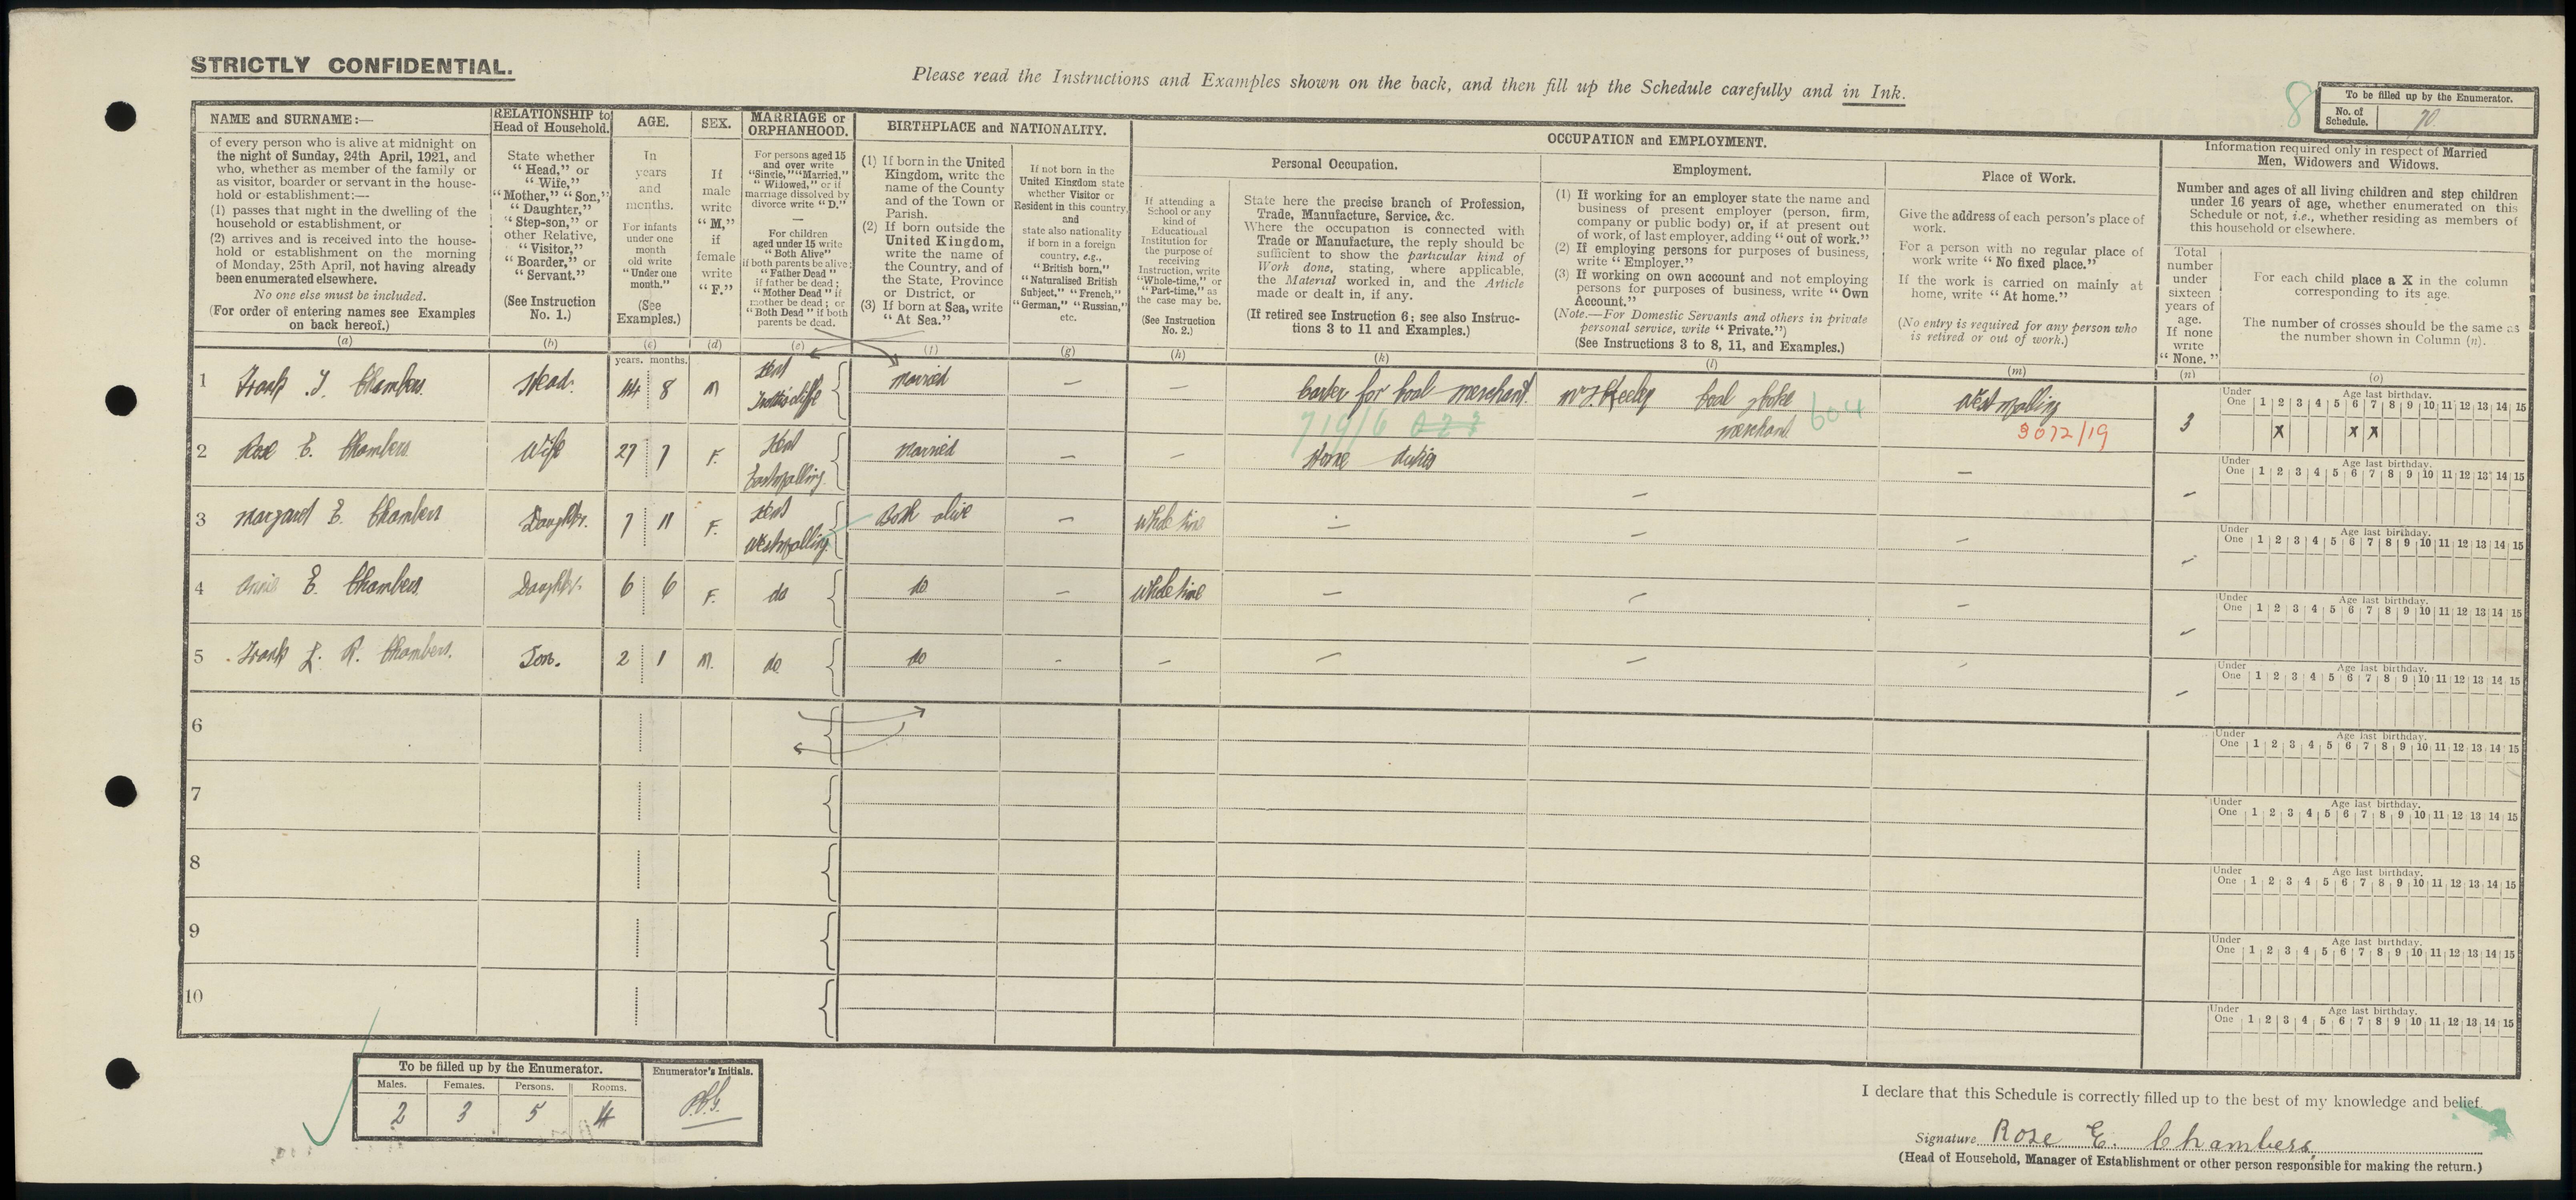 STRICTLY CONFIDENTIAL.
Please read the Instructions and Examples shown on the back, and then fill up the Schedule carefully and in Ink.
8
To be filled up by the Enumerator.
No. of Schedule. 70
NAME and SURNAME:—
of every person who is alive at midnight on
the night of Sunday, 24th April, 1921, and
who, whether as member of the family or
as visitor, boarder or servant in the house-
hold or establishment:—
(1) passes that night in the dwelling of the
household or establishment, or
(2) arrives and is received into the house-
hold or establishment on the morning
of Monday, 25th April, not having already
been enumerated elsewhere.
No one else must be included.
(For order of entering names see Examples
on back hereof.)
(a)
RELATIONSHIP to
Head of Household.
State whether
"Head," or
"Wife,"
"Mother," "Son,"
"Daughter,"
"Step-son," or
other Relative,
"Visitor,"
"Boarder," or
"Servant."
(See Instruction
No. 1.)
(b)
AGE.
In
years
and
months.
For infants
under one
month
old write
"Under one
month."
(See
Examples.)
(c)
years. months.
SEX.
If
male
write
"M,"
if
female
write
"F."
(d)
MARRIAGE or
ORPHANHOOD.
For persons aged 15
and over write
"Single," "Married,"
"Widowed," or if
marriage dissolved by
divorce write "D."
—
For children
aged under 15 write
"Both Alive"
if both parents be alive;
"Father Dead"
if father be dead;
"Mother Dead" if
mother be dead; or
"Both Dead" if both
parents be dead.
(e)
BIRTHPLACE and NATIONALITY.
(1) If born in the United
Kingdom, write the
name of the County
and of the Town or
Parish.
(2) If born outside the
United Kingdom,
write the name of
the Country, and of
the State, Province
or District, or
(3) If born at Sea, write
"At Sea."
(f)
If not born in the
United Kingdom state
whether Visitor or
Resident in this country,
and
state also nationality
if born in a foreign
country, e.g.,
"British born,"
"Naturalised British
Subject," "French,"
"German," "Russian,"
etc.
(g)
OCCUPATION and EMPLOYMENT.
Personal Occupation.
If attending a
School or any
kind of
Educational
Institution for
the purpose of
receiving
Instruction, write
"Whole-time," or
"Part-time," as
the case may be.
(See Instruction
No. 2.)
(h)
State here the precise branch of Profession,
Trade, Manufacture, Service, &c.
Where the occupation is connected with
Trade or Manufacture, the reply should be
sufficient to show the particular kind of
Work done, stating, where applicable,
the Material worked in, and the Article
made or dealt in, if any.
(If retired see Instruction 6; see also Instruc-
tions 3 to 11 and Examples.)
(k)
Employment.
(1) If working for an employer state the name and
business of present employer (person, firm,
company or public body) or, if at present out
of work, of last employer, adding "out of work."
(2) If employing persons for purposes of business,
write "Employer."
(3) If working on own account and not employing
persons for purposes of business, write "Own
Account."
(Note.—For Domestic Servants and others in private
personal service, write "Private.")
(See Instructions 3 to 8, 11, and Examples.)
(l)
Place of Work.
Give the address of each person's place of
work.
For a person with no regular place of
work write "No fixed place."
If the work is carried on mainly at
home, write "At home."
(No entry is required for any person who
is retired or out of work.)
(m)
Information required only in respect of Married
Men, Widowers and Widows.
Number and ages of all living children and step children
under 16 years of age, whether enumerated on this
Schedule or not, i.e., whether residing as members of
this household or elsewhere.
Total
number
under
sixteen
years of
age.
If none
write
"None."
(n)
For each child place a X in the column
corresponding to its age.
The number of crosses should be the same as
the number shown in Column (n).
(o)
1 Frank T. Chambers. Head. 44 8 M Kent Trottiscliffe Married — — Carter for Coal Merchant. Coal Coke merchant West Malling 3
719/6 604 3072/19
Under One Age last birthday. 1 2 3 4 5 6 7 8 9 10 11 12 13 14 15
x x x
2 Rose E. Chambers. Wife 27 7 F. Kent East Malling. Married — — Home duties — — -
Under One Age last birthday. 1 2 3 4 5 6 7 8 9 10 11 12 13 14 15
3 Margaret E. Chambers Daughter. 7 11 F. Kent West Malling Both alive — Whole time — — — -
Under One Age last birthday. 1 2 3 4 5 6 7 8 9 10 11 12 13 14 15
4 Annie E. Chambers. Daughter. 6 6 F. do do — Whole time — — — -
Under One Age last birthday. 1 2 3 4 5 6 7 8 9 10 11 12 13 14 15
5 Frank L. R. Chambers. Son. 2 1 M. do do - — — — - —
Under One Age last birthday. 1 2 3 4 5 6 7 8 9 10 11 12 13 14 15
6
Under One Age last birthday. 1 2 3 4 5 6 7 8 9 10 11 12 13 14 15
7
Under One Age last birthday. 1 2 3 4 5 6 7 8 9 10 11 12 13 14 15
8
Under One Age last birthday. 1 2 3 4 5 6 7 8 9 10 11 12 13 14 15
9
Under One Age last birthday. 1 2 3 4 5 6 7 8 9 10 11 12 13 14 15
10
Under One Age last birthday. 1 2 3 4 5 6 7 8 9 10 11 12 13 14 15
To be filled up by the Enumerator.
Males. Females. Persons. Rooms.
2 3 5 4
Enumerator's Initials.
I declare that this Schedule is correctly filled up to the best of my knowledge and belief.
Signature Rose E. Chambers.
(Head of Household, Manager of Establishment or other person responsible for making the return.)